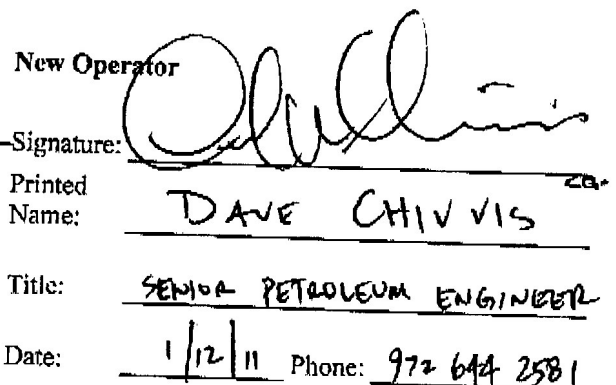 New Operator
Signature:
Printed
Name: DAVE CHIVVIS
Title: SENIOR PETROLEUM ENGINEER
Date: 1/12/11 Phone: 972 644 2581